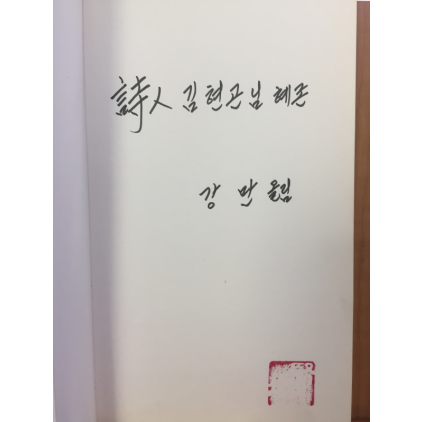 詩人 김현관님 혜존
강만 올림